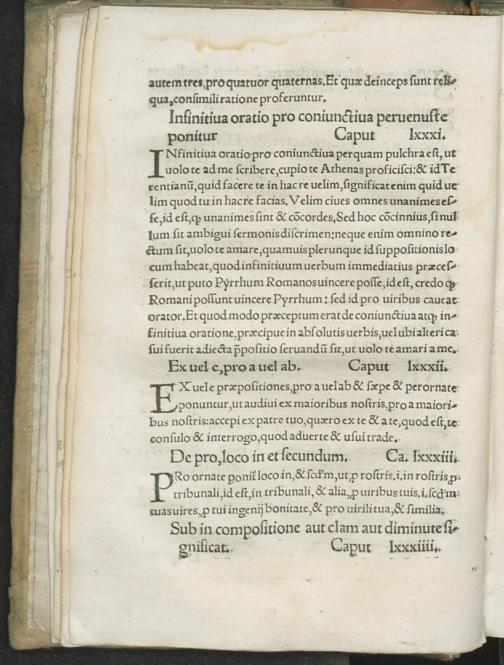 autem tres,pro quatuor quaternas.Et quæ deinceps sunt reli-
qua,consimili ratione proferuntur.
Infinitiua oratio pro coniunctiua peruenuste
ponitur Caput lxxxi.
INfinitiua oratio pro coniunctiua perquam pulchra est, ut
uolo te ad me scribere,cupio te Athenas proficisci:& id Te
rentianū,quid facere te in hac re uelim,significat enim quid ue
lim quod tu in hac re facias. Velim ciues omnes unanimes es-
se,id est,ꝙ unanimes sint & cōcordes.Sed hoc cōcinnius,si nul
lum sit ambigui sermonis discrimen:neque enim omnino re-
ctum sit,uolo te amare,quamuis plerunque id suppositionis lo
cum habeat,quod infinitiuum uerbum immediatius præces-
serit,ut puto Pyrrhum Romanos uincere posse,id est, credo ꝙ
Romani possunt uincere Pyrrhum : sed id pro uiribus caueat
orator. Et quod modo præceptum erat de coniunctiua atqꝫ in-
finitiua oratione,præcipue in absolutis uerbis,uel ubi alteri ca
sui fuerit adiecta p̄positio seruandū sit,ut uolo te amari a me.
Ex uel e,pro a uel ab. Caput lxxxii.
EX uel e præpositiones,pro a uel ab & sæpe & perornate
ponuntur,ut audiui ex maioribus nostris,pro a maiori-
bus nostris:accepi ex patre tuo,quæro ex te & a te,quod est,te
consulo & interrogo,quod aduerte & usui trade.
De pro,loco in et secundum. Ca. lxxxiii.
PRo ornate ponit̃ loco in,& scd'm,ut,ꝓ rostris.i.in rostris,ꝓ
tribunali,id est,in tribunali,& alia,ꝓ uiribus tuis.i.scd'm
tuas uires,ꝓ tui ingenij bonitate,& pro uirili tua,& similia.
Sub in compositione aut clam aut diminute si-
gnificat. Caput lxxxiiii.